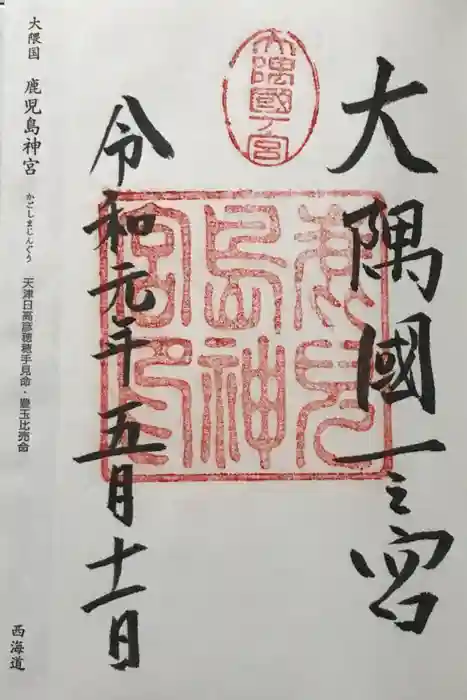 大隅國一之宮
大隅國一ノ宮
鹿兒
島神
宮印
令和元年五月十一日
大隅国 鹿児島神宮 かごしまじんぐう 天津日高彦穂穂手見命・豊玉比売命 西海道